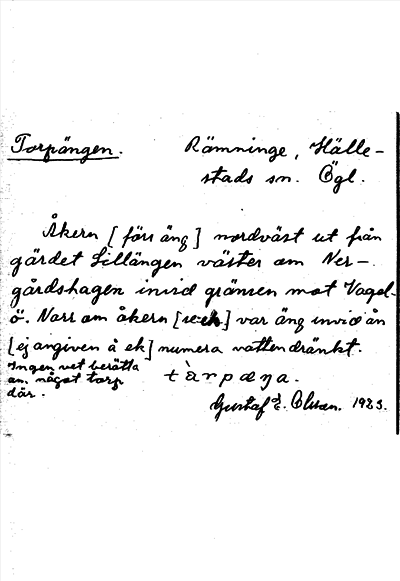 Torpängen. Rämninge, Hälle-
stads sn. Ögl.
Åkern [förr äng] nordväst ut från
gärdet Lillängen väster om Ner-
gårdshagen invid gränsen mot Vagel-
ö. Norr om åkern [se ek] var äng invid ån
[ej angiven å ek] numera vattendränkt.
Ingen vet berätta
om något torp
där.
tàrpæŋa.
Gustaf E. Olsson. 1923.